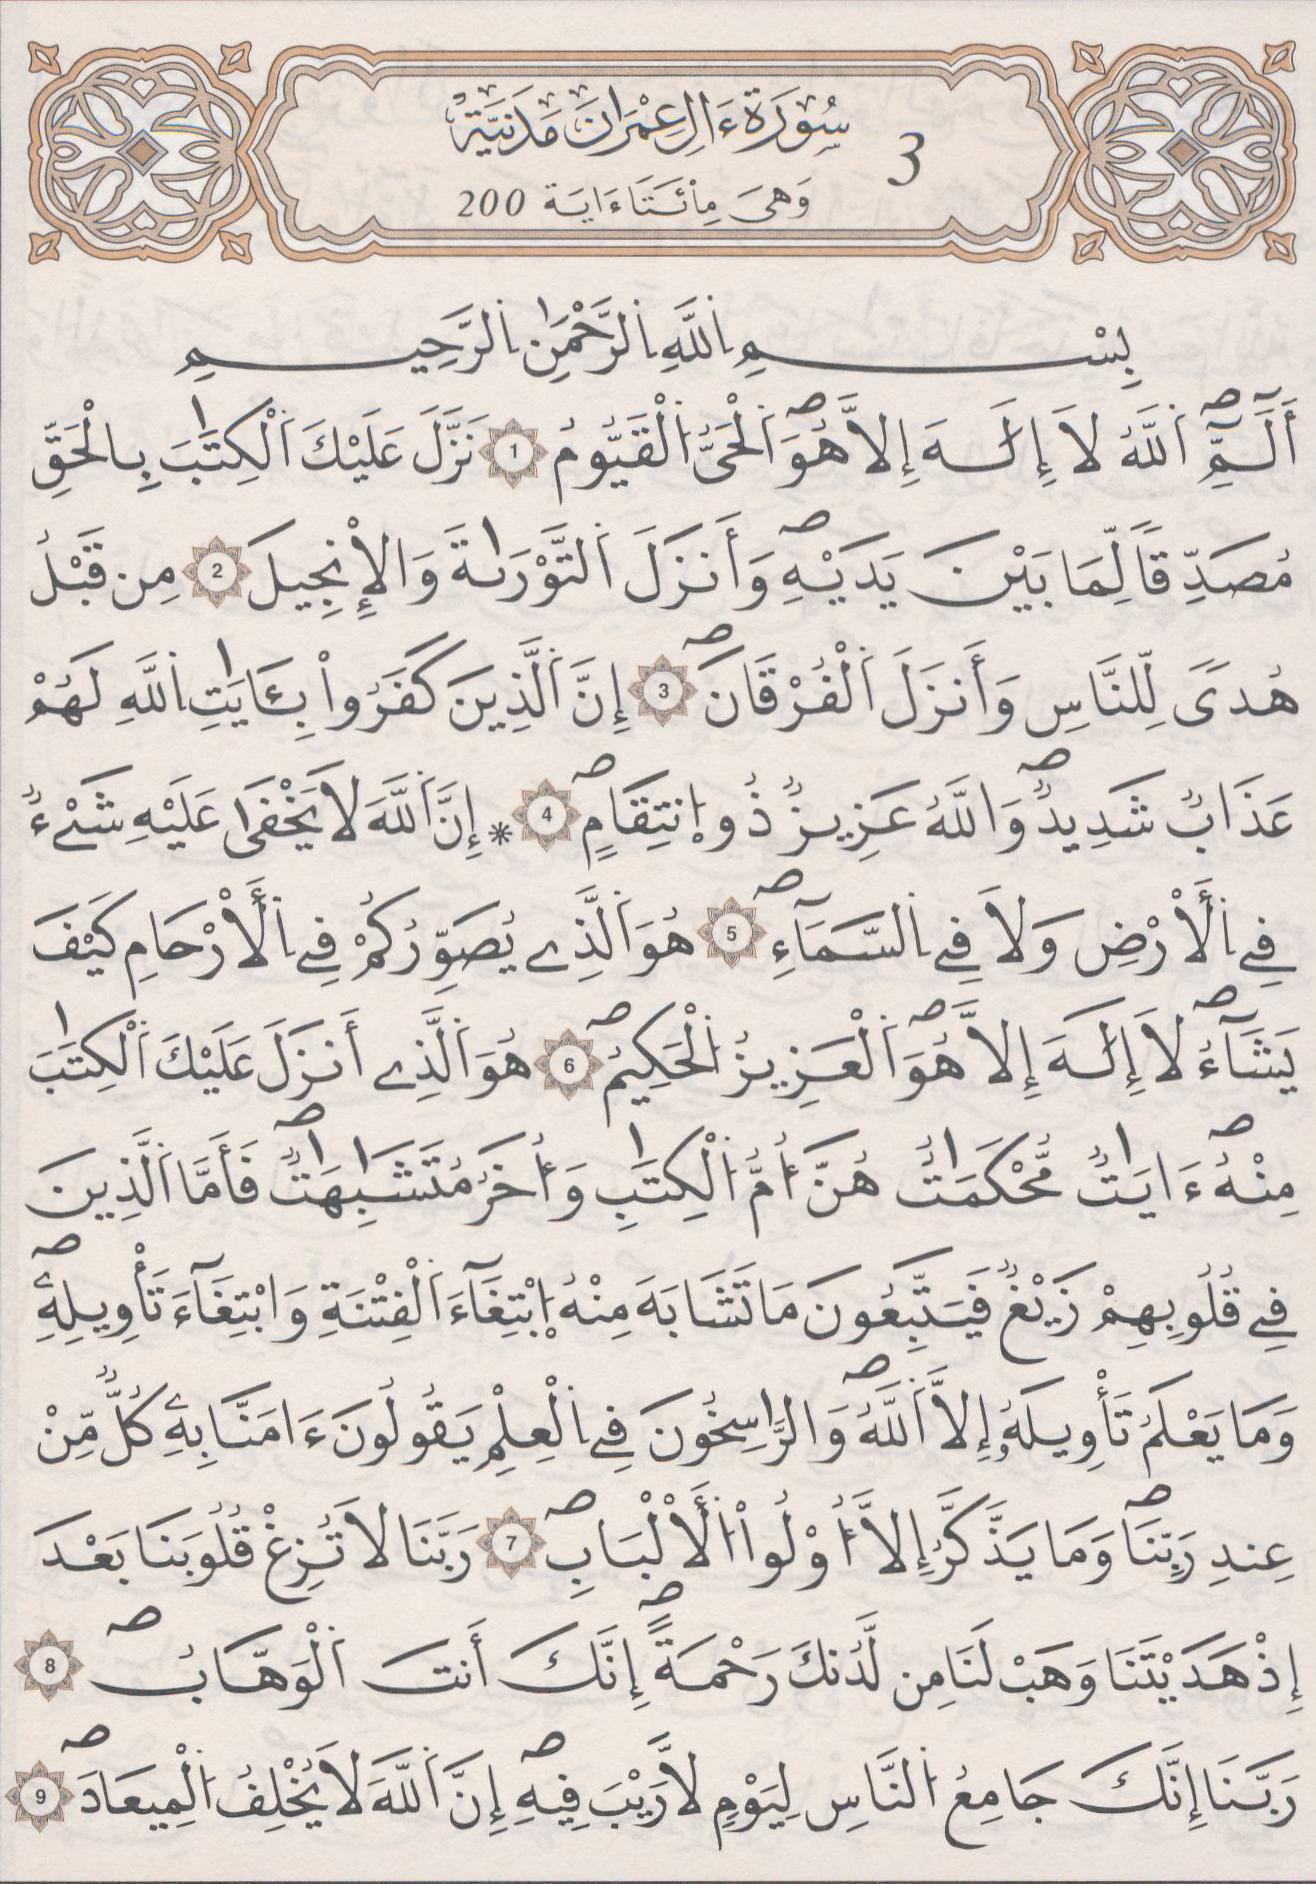 سُورَةُ ءَالِ عِمْرَانَ مَدَنِيَّةٌ
3
وَهِيَ مِاْئَتَا ءَايَة 200
بِسْمِ اِ۬للَّهِ اِ۬لرَّحْمَٰنِ اِ۬لرَّحِيمِ
أَلَٓمِّٓۖ اَ۬للَّهُ لَا إِلَٰهَ إِلَّا هُوَۖ اَ۬لْحَيُّ اُ۬لْقَيُّومُ 1 نَزَّلَ عَلَيْكَ اَ۬لْكِتَٰبَ بِالْحَقِّ
مُصَدِّقاً لِّمَا بَيْنَ يَدَيْهِۖ وَأَنزَلَ اَ۬لتَّوْرَىٰةَ وَالْإِنجِيلَ 2 مِن قَبْلُ
هُدىً لِّلنَّاسِ وَأَنزَلَ اَ۬لْفُرْقَانَۖ 3 إِنَّ اَ۬لَّذِينَ كَفَرُواْ بِـَٔايَٰتِ اِ۬للَّهِ لَهُمْ
عَذَابٌ شَدِيدٌۖ وَاللَّهُ عَزِيزٌ ذُو اُ۪نتِقَامٍۖ 4 * إِنَّ اَ۬للَّهَ لَا يَخْفَىٰ عَلَيْهِ شَيْءٌ
فِے اِ۬لْأَرْضِ وَلَا فِے اِ۬لسَّمَآءِۖ 5 هُوَ اَ۬لَّذِے يُصَوِّرُكُمْ فِے اِ۬لْأَرْحَامِ كَيْفَ
يَشَآءُۖ لَا إِلَٰهَ إِلَّا هُوَۖ اَ۬لْعَزِيزُ اُ۬لْحَكِيمُۖ 6 هُوَ اَ۬لَّذِے أَنزَلَ عَلَيْكَ اَ۬لْكِتَٰبَ
مِنْهُۖ ءَايَٰتٌ مُّحْكَمَٰتٌ هُنَّ أُمُّ اُ۬لْكِتَٰبِ وَأُخَرُ مُتَشَٰبِهَٰتٌۖ فَأَمَّا اَ۬لَّذِينَ
فِے قُلُوبِهِمْ زَيْغٌ فَيَتَّبِعُونَ مَا تَشَابَهَ مِنْهُ اُ۪بْتِغَآءَ اَ۬لْفِتْنَةِ وَابْتِغَآءَ تَأْوِيلِهِۦۖ
وَمَا يَعْلَمُ تَأْوِيلَهُۥ إِلَّا اَ۬للَّهُۖ وَالرَّٰسِخُونَ فِے اِ۬لْعِلْمِ يَقُولُونَ ءَامَنَّا بِهِۦ كُلٌّ مِّنْ
عِندِ رَبِّنَاۖ وَمَا يَذَّكَّرُ إِلَّا أُوْلُواْ اُ۬لْأَلْبَابِۖ 7 رَبَّنَا لَا تُزِغْ قُلُوبَنَا بَعْدَ
إِذْ هَدَيْتَنَا وَهَبْ لَنَا مِن لَّدُنكَ رَحْمَةًۖ إِنَّكَ أَنتَ اَ۬لْوَهَّابُۖ 8
رَبَّنَا إِنَّكَ جَامِعُ اُ۬لنَّاسِ لِيَوْمٍ لَّا رَيْبَ فِيهِۖ إِنَّ اَ۬للَّهَ لَا يُخْلِفُ اُ۬لْمِيعَادَۖ 9